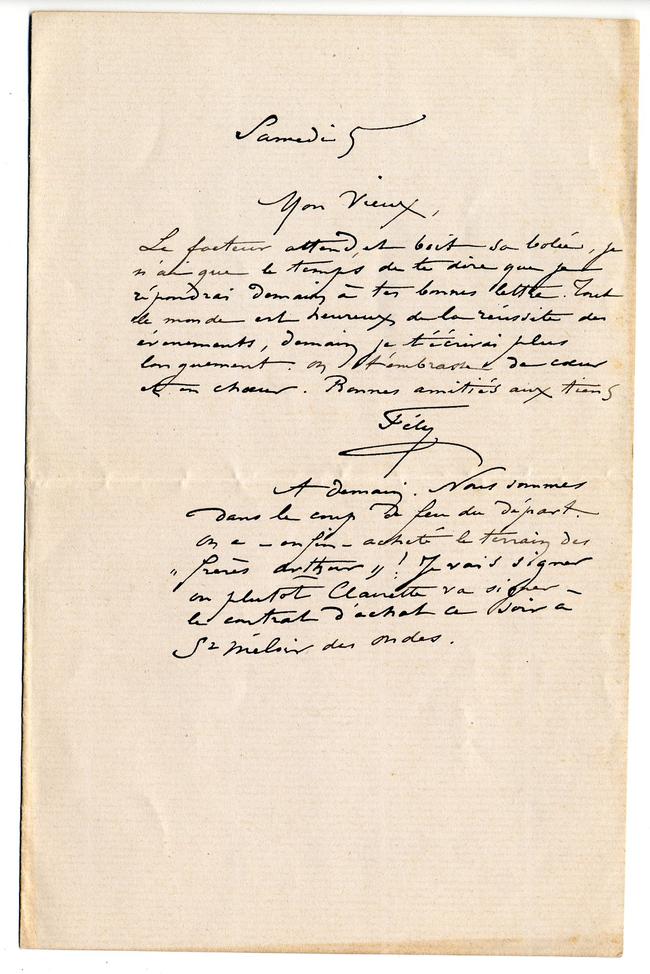 Samedi 5
Mon Vieux,
Le facteur attend, et boit sa bolée, je
n'ai que le temps de te dire que je
répondrai demain à tes bonnes lettre. Tout
le monde est heureux de la réussite des
évenements, demain je t'écrirai plus
longuement. on t'embrasse de cœur
et en chœur. Bonnes amitiés aux tiens
Fély
A demain. Nous sommes
dans le coup de feu du départ.
on a - enfin - acheté le terrain des
"frères arthur" ! Je vais signer
ou plutôt Clairette va signer -
le contrat d'achat ce soir à
St Méloir des ondes.